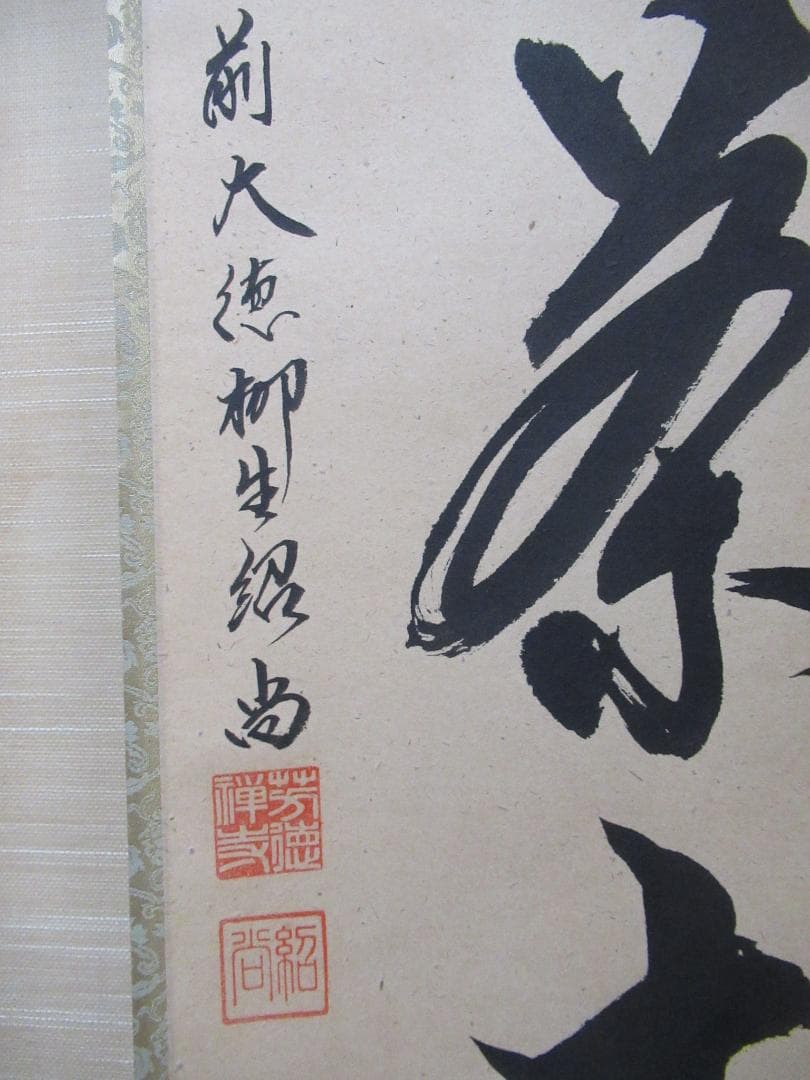 茶
前大徳柳生紹尚
芳徳禅寺
紹尚